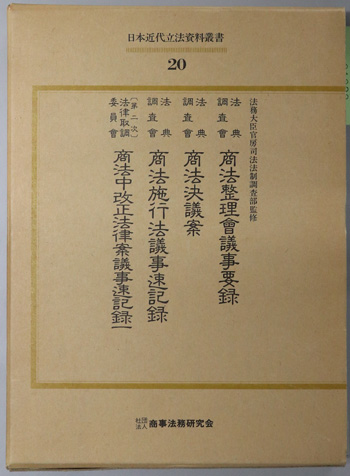 日本近代立法資料叢書
20
法務大臣官房司法法制調査部監修
法典調査會 商法整理會議事要録
法典調査會 商法決議案
法典調査會 商法施行法議事速記録
〔第二次〕法律取調委員會 商法中改正法律案議事速記録一
社団法人 商事法務研究会